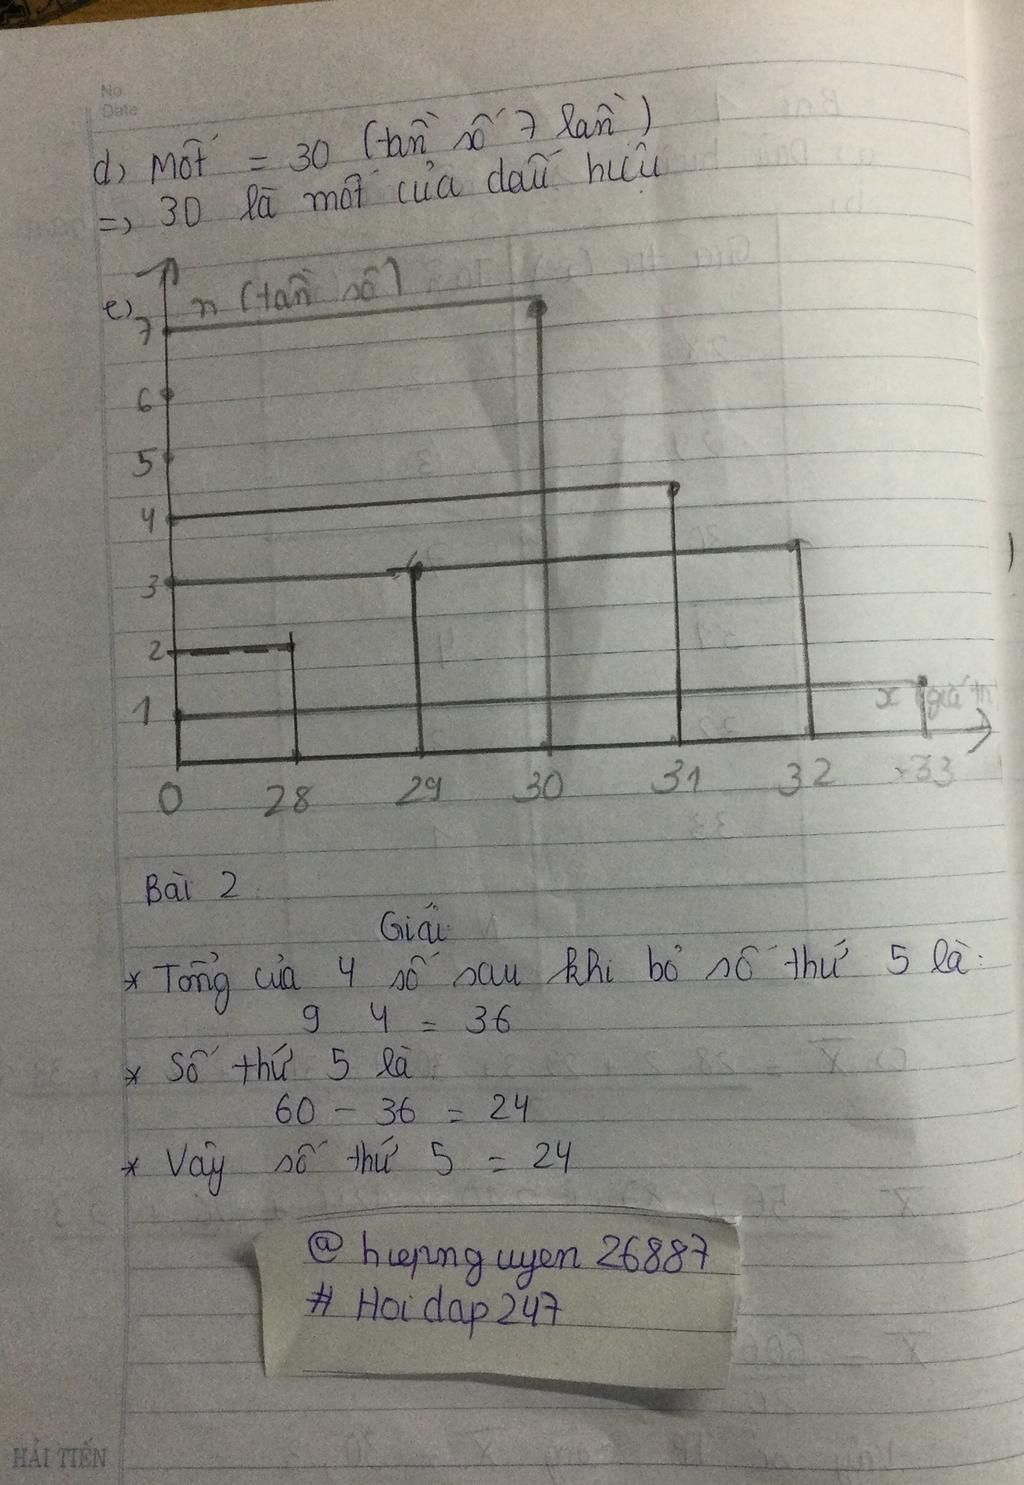 No.
Date
d) Mốt = 30 (tần số 7 lần)
=> 30 là mốt của dấu hiệu
e)
n (tần số)
7
6
5
4
3
2
1
x (giá tr
0 28 29 30 31 32 33
Bài 2
Giải
* Tổng của 4 số sau khi bỏ số thứ 5 là:
9 4 = 36
* Số thứ 5 là
60 - 36 = 24
* Vậy số thứ 5 = 24
@ hiepnguyen 26887
# Hoidap247
HẢI TIẾN